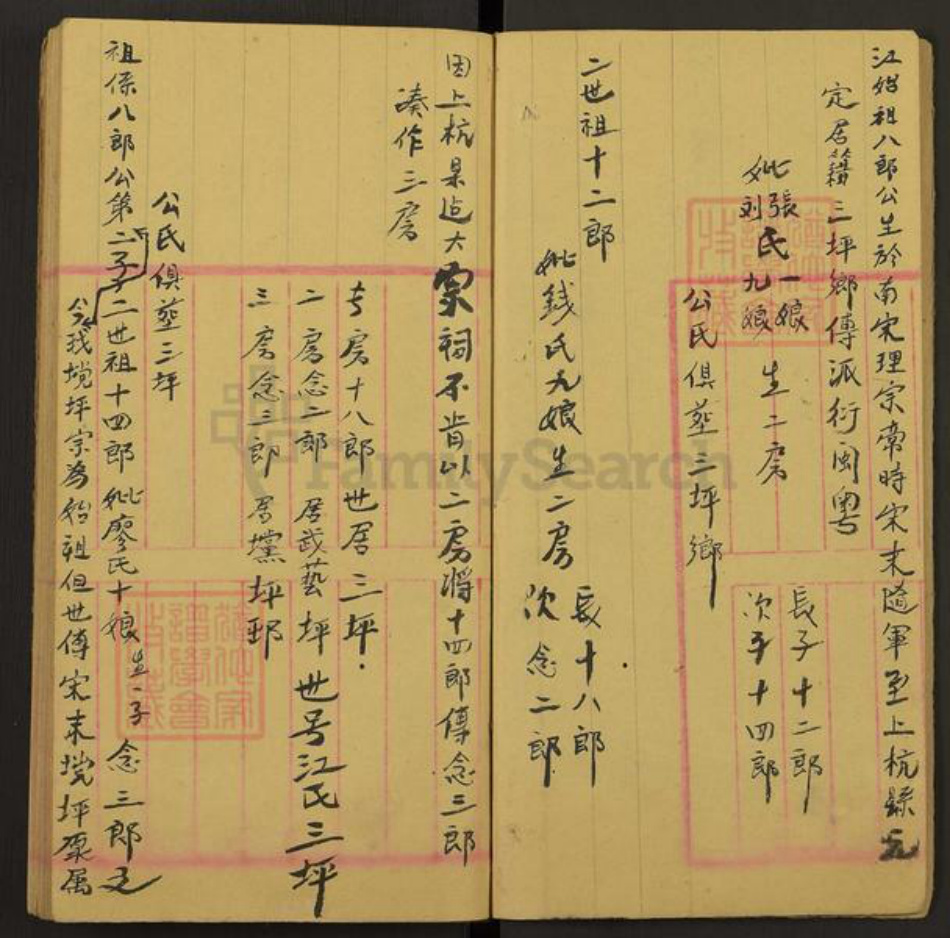 江始祖八郎公生於南宋理宗帝時宋末随軍至上杭縣
定居籍三坪鄉傳派衍闽粤
妣張氏一娘
刘氏九娘
生二房
長子十二郎
次子十四郎
公氏俱葬三坪鄉
二世祖十二郎
妣錢氏九娘生二房
長十八郎
次念二郎
因上杭是造大宗祠不肯以二房將十四郎傳念三郎
凑作三房
長房十八郎世居三坪
二房念二郎 居武藝坪 世号江氏三坪
三房念三郎 居黨坪
公氏俱葬三坪
祖係八郎公第二子二世祖十四郎妣廖氏十娘生一子 念三郎
今我塘坪宗為始祖但世傳宋末塘坪原属
FamilySearch